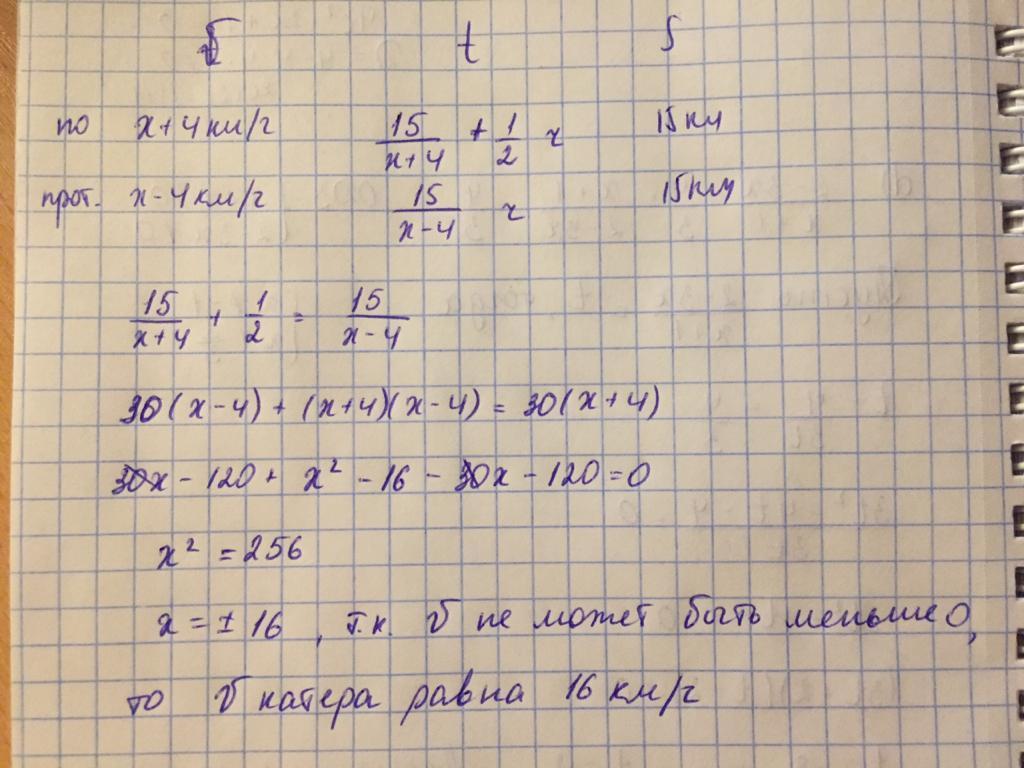 v t S
по x+4 км/ч 15/(x+4) + 1/2 ч 15 км
прот. x-4 км/ч 15/(x-4) ч 15 км
15/(x+4) + 1/2 = 15/(x-4)
30(x-4) + (x+4)(x-4) = 30(x+4)
30x - 120 + x² - 16 - 30x - 120 = 0
x² = 256
x = ± 16 , т.к. v не может быть меньше 0,
то v катера равна 16 км/ч